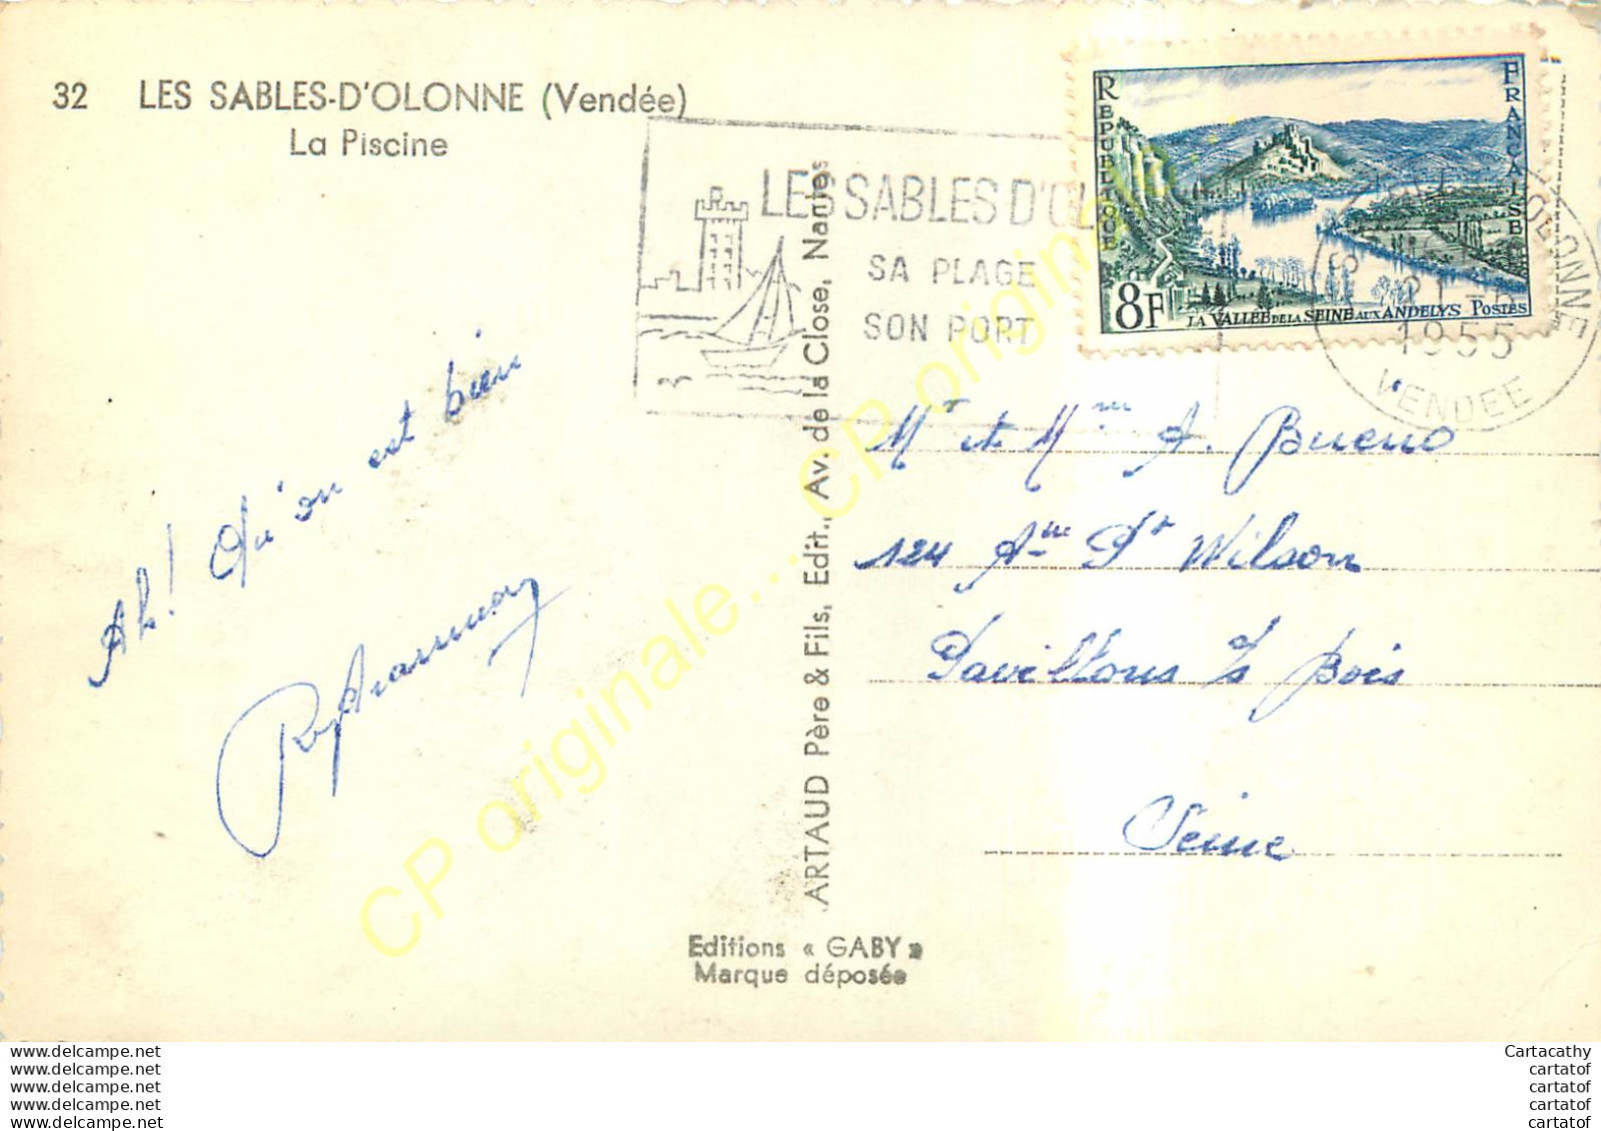 32 LES SABLES-D'OLONNE (Vendée)
La Piscine
LES SABLES D'OL
SA PLAGE
SON PORT
REPUBLIQUE
FRANÇAISE
8F
LA VALLÉE DE LA SEINE AUX ANDELYS POSTES
OLONNE
1955
VENDEE
Ah! Qu'on est bien
Mr et Mme A. Bueno
124 Ave Pt Wilson
Pavillons s/s Bois
Seine
ARTAUD Père & Fils, Edit., Av. de la Close, Nantes
Editions « GABY »
Marque déposée
CP originale... CP originale...
www.delcampe.net
www.delcampe.net
www.delcampe.net
www.delcampe.net
www.delcampe.net
Cartacathy
cartatof
cartatof
cartatof
cartatof